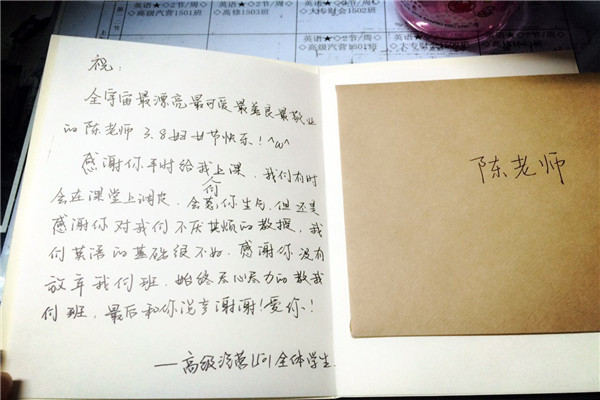 英语★◇2节/周◇
◇高级汽营1501班
英语★◇2节/周◇
◇高修1503班
英语★◇2节/周◇
◇大专财会1502班
英语★◇2节/周◇
◇高级汽营1501
祝：
全宇宙最漂亮最可爱最善良最敬业
的陈老师 3.8妇女节快乐！^w^
感谢你平时给我们上课，我们有时
会在课堂上调皮，会惹你生气，但还是
感谢你对我们不厌其烦的教授，我
们英语的基础很不好，感谢你没有
放弃我们班，始终尽心尽力的教我
们班，最后和你说声谢谢！爱你！
——高级汽营1501全体学生
陈老师